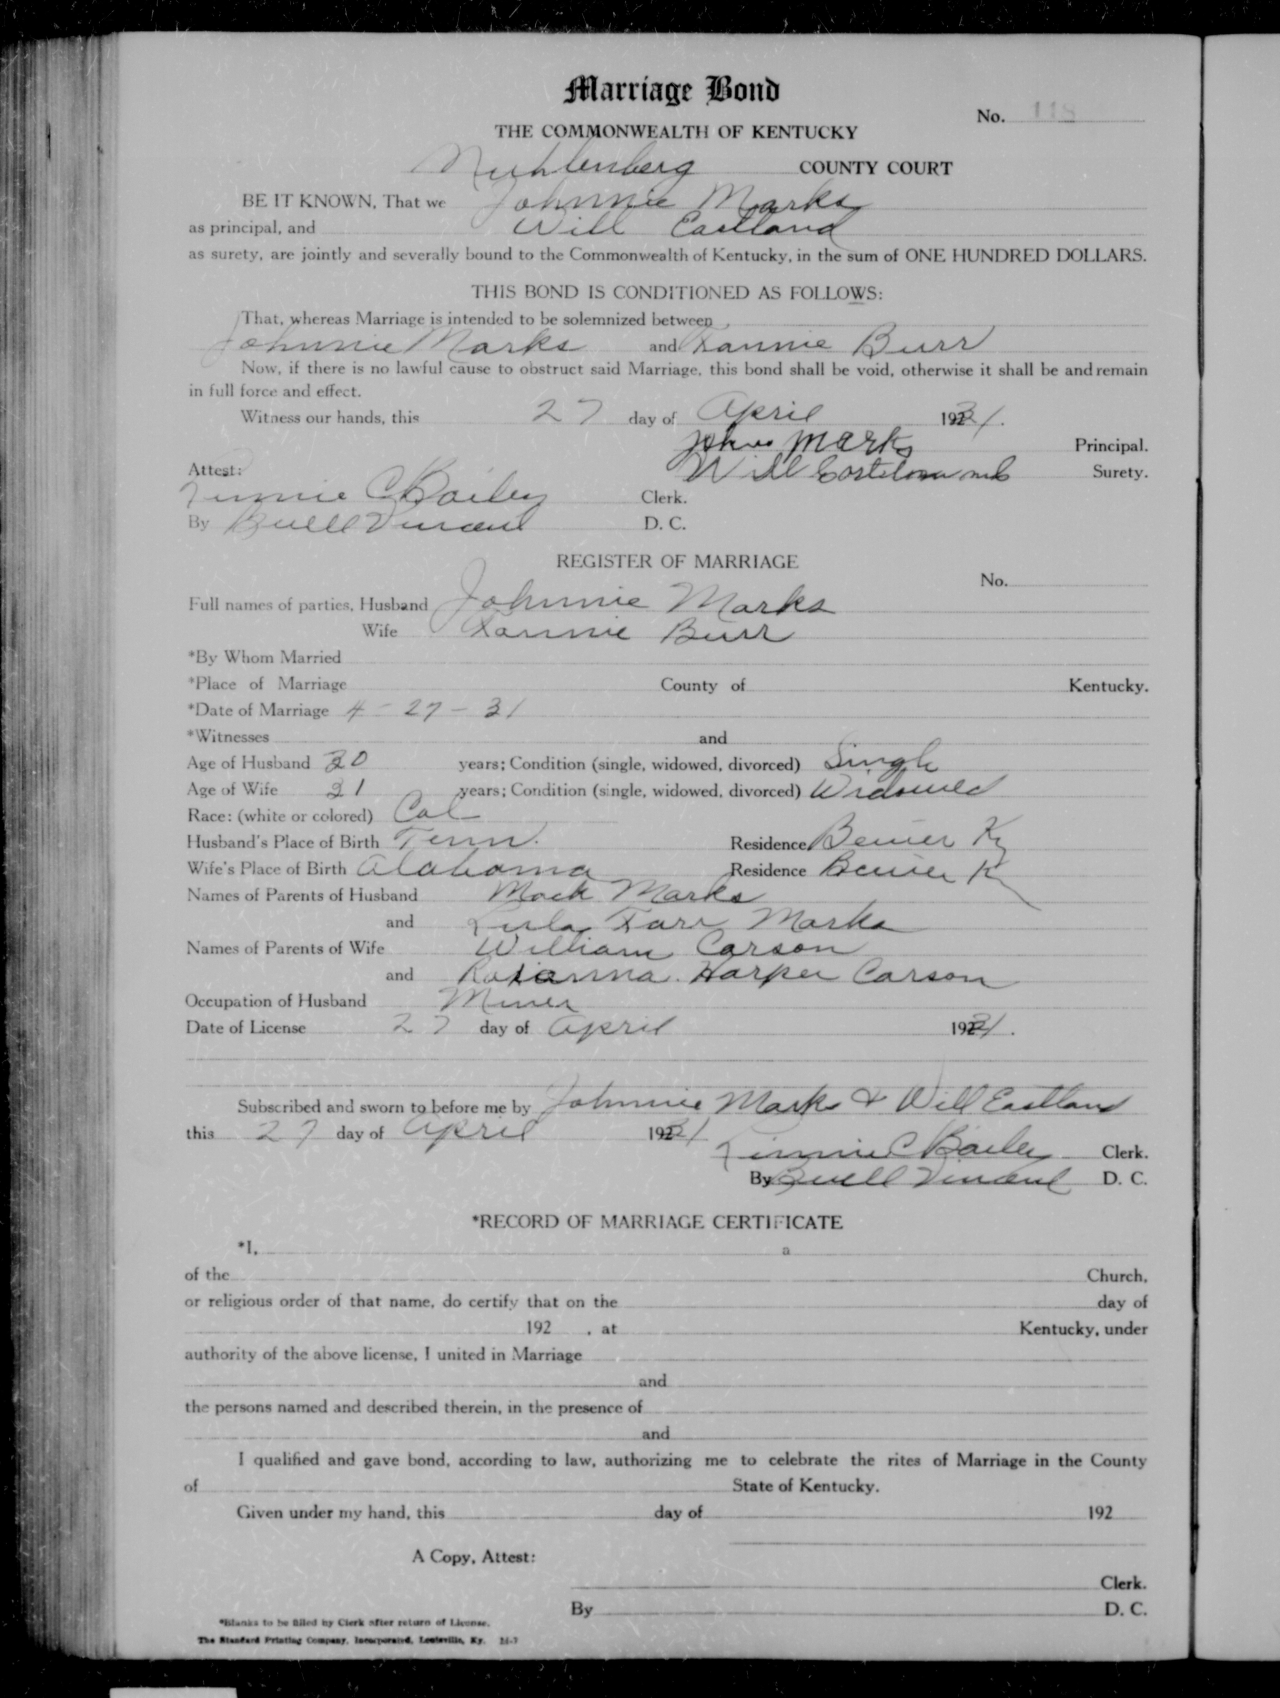 Marriage Bond
No. 118
THE COMMONWEALTH OF KENTUCKY
Muhlenberg COUNTY COURT
BE IT KNOWN, That we Johnnie Marks
as principal, and Will Eastland
as surety, are jointly and severally bound to the Commonwealth of Kentucky, in the sum of ONE HUNDRED DOLLARS.
THIS BOND IS CONDITIONED AS FOLLOWS:
That, whereas Marriage is intended to be solemnized between
Johnnie Marks and Fannie Burr
Now, if there is no lawful cause to obstruct said Marriage, this bond shall be void, otherwise it shall be and remain
in full force and effect.
Witness our hands, this 27 day of April 1931.
Marks Principal.
Attest: Will Surety.
C Bailey Clerk.
By Buell Vincent D. C.
REGISTER OF MARRIAGE
No.
Full names of parties, Husband Johnnie Marks
Wife Fannie Burr
*By Whom Married
*Place of Marriage County of Kentucky.
*Date of Marriage 4-27-31
*Witnesses and
Age of Husband 30 years; Condition (single, widowed, divorced) Single
Age of Wife 21 years; Condition (single, widowed, divorced) Widowed
Race: (white or colored) Col
Husband's Place of Birth Tenn. Residence Bevier Ky
Wife's Place of Birth Alabama Residence Bevier Ky
Names of Parents of Husband Mack Marks
and Lula Farr Marks
Names of Parents of Wife William Carson
and Harper Carson
Occupation of Husband Miner
Date of License 27 day of April 1931.
Subscribed and sworn to before me by Johnnie Marks & Will Eastland
this 27 day of April 1931
C Bailey Clerk.
By Buell Vincent D. C.
*RECORD OF MARRIAGE CERTIFICATE
*I, a
of the Church,
or religious order of that name, do certify that on the day of
192 , at Kentucky, under
authority of the above license, I united in Marriage
and
the persons named and described therein, in the presence of
and
I qualified and gave bond, according to law, authorizing me to celebrate the rites of Marriage in the County
of State of Kentucky.
Given under my hand, this day of 192
A Copy, Attest:
Clerk.
By D. C.
*Blanks to be filled by Clerk after return of License.
The Standard Printing Company, Incorporated, Louisville, Ky.